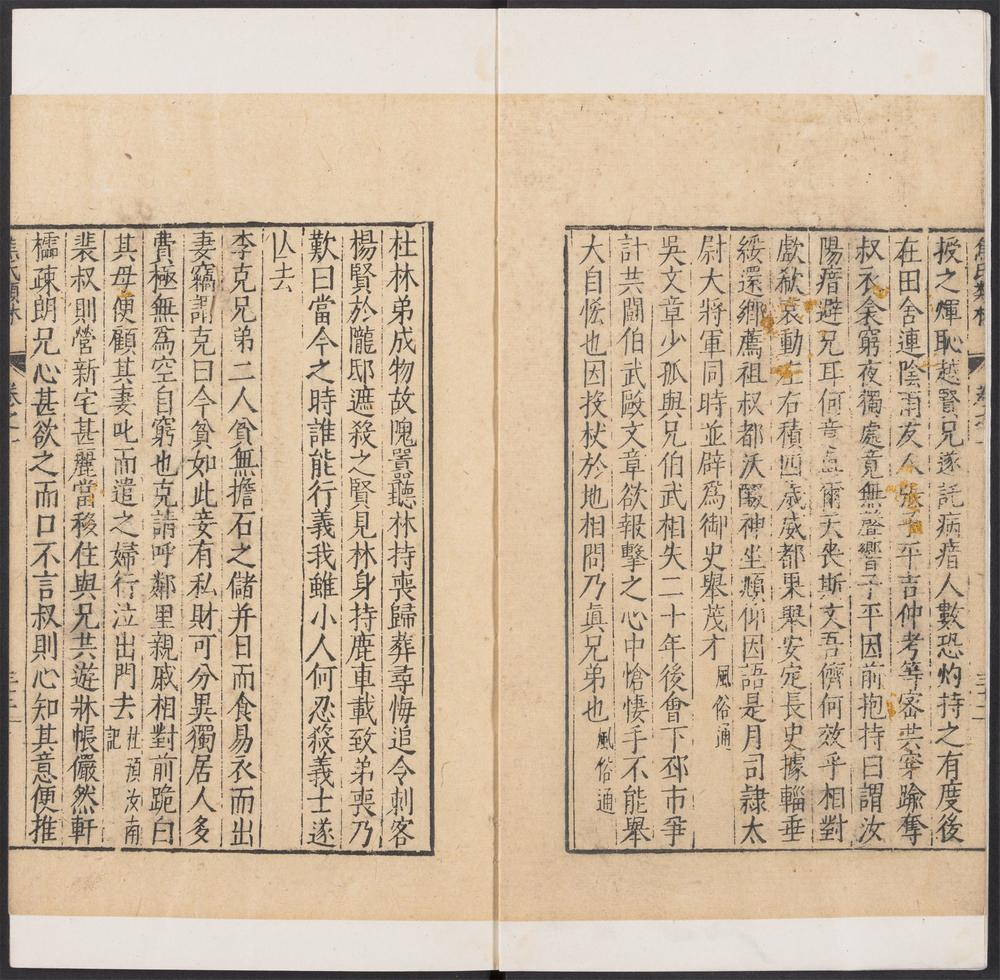 焦氏類林
卷之一
三十二
授之煇恥越賢兄遂託病瘖人數恐灼持之有度後
在田舍連陰雨友人張子平吉仲考等密共穿踰奪
叔衣衾窮夜獨處竟無聲響子平因前抱持曰謂汝
陽瘖避兄耳何意真爾天喪斯文吾儕何效乎相對
歔欷哀動左右積四歲威都果舉安定長史據輜垂
綬還鄉薦祖叔都沃醊神坐頫仰因語是月司隸太
尉大將軍同時並辟爲御史舉茂才風俗通
吳文章少孤與兄伯武相失二十年後會下邳市爭
計共鬪伯武毆文章欲報擊之心中愴悽手不能舉
大自怪也因投杖於地相問乃眞兄弟也風俗通
杜林弟成物故隗囂聽林持喪歸葬尋悔追令刺客
楊賢於隴邸遮殺之賢見林身持鹿車載致弟喪乃
歎曰當今之時誰能行義我雖小人何忍殺義士遂
亾去
李克兄弟二人貧無擔石之儲并日而食易衣而出
妻竊謂克曰今貧如此妾有私財可分異獨居人多
費極無爲空自窮也克請呼鄰里親戚相對前跪白
其母便顧其妻叱而遣之婦行泣出門去杜預汝南記
裴叔則營新宅甚麗當移住與兄共遊牀帳儼然軒
櫺疎朗兄心甚欲之而口不言叔則心知其意便推
焦氏類林
卷之一